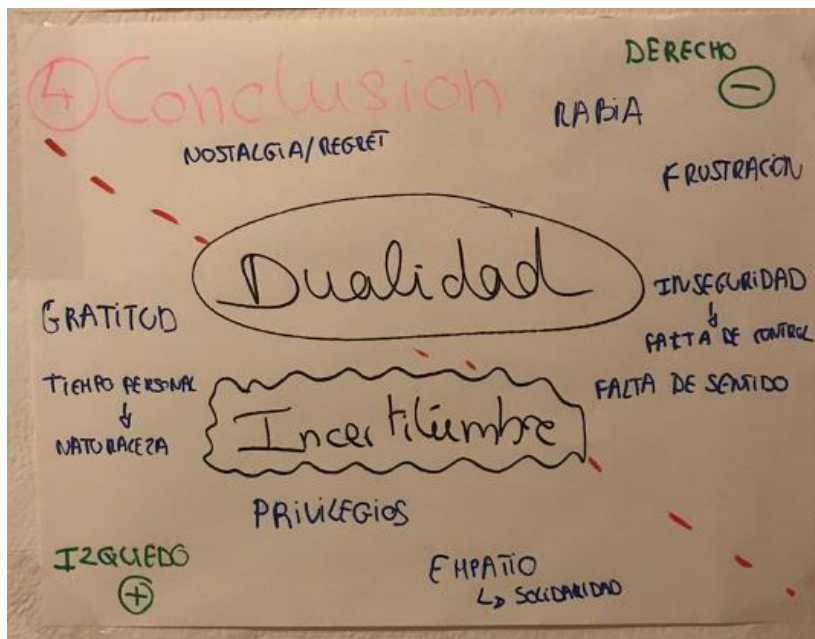 ④ Conclusion
DERECHO
⊖
RABIA
NOSTALGIA/REGRET
FRUSTRACION
Dualidad
INSEGURIDAD
↓
FALTA DE CONTROL
GRATITUD
TIEMPO PERSONAL
↓
NATURALEZA
FALTA DE SENTIDO
Incertilumbre
PRIVILEGIOS
IZQUEDO
⊕
EMPATIO
↳ SOLIDARIDAD